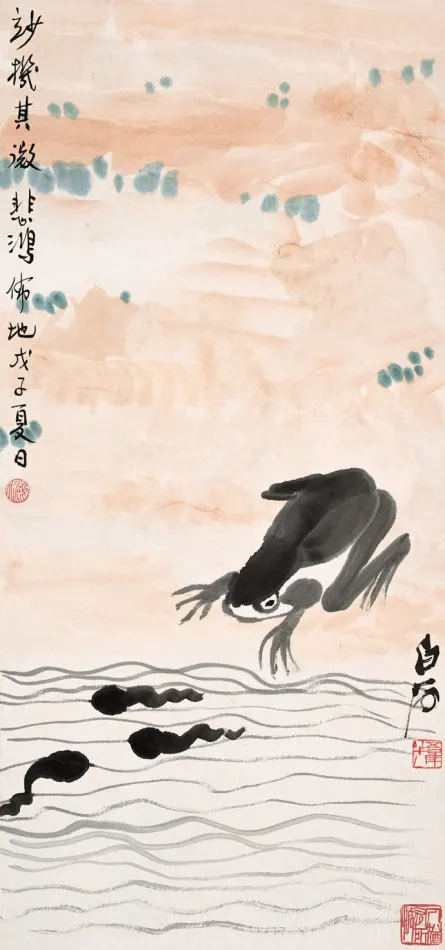 妙機其微 悲鴻佈地 戊子夏日
白石